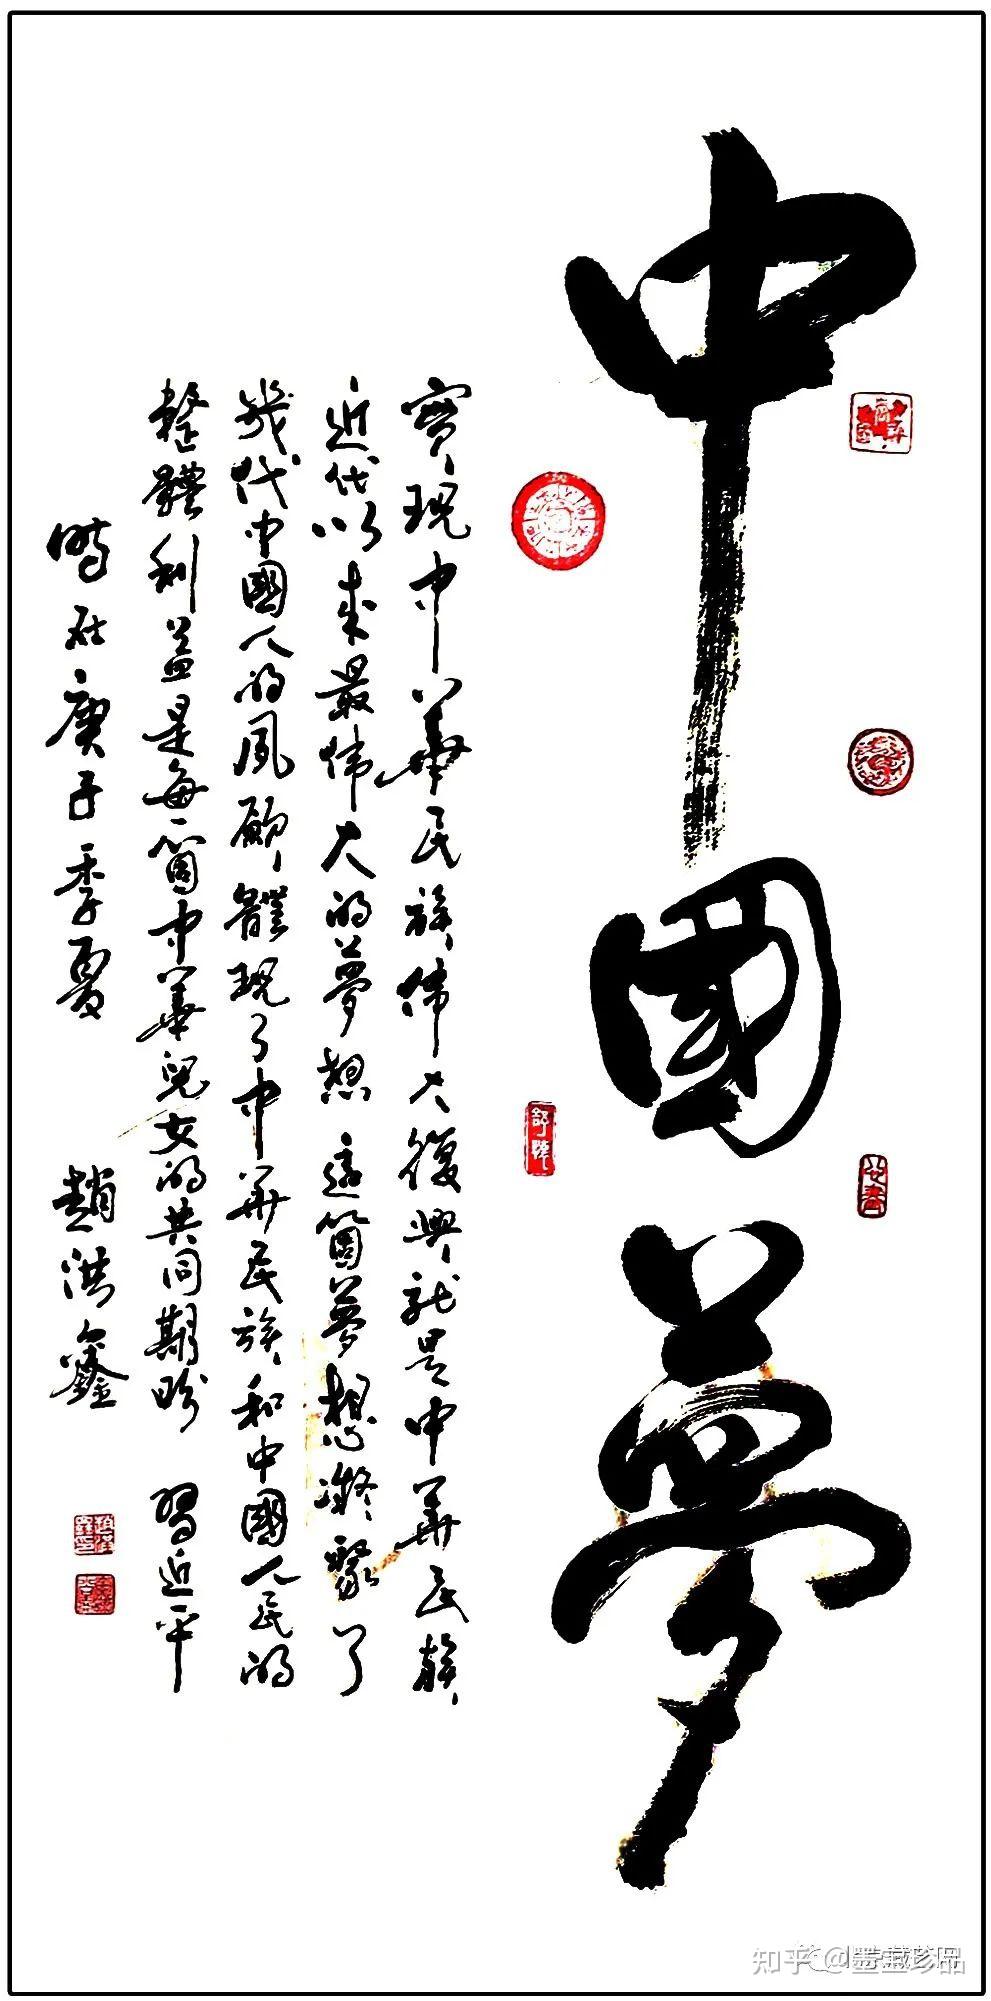 中國夢
實現中華民族偉大復興就是中華民族
近代以來最偉大的夢想這箇夢想凝聚了
幾代中國人的夙願體現了中華民族和中國人民的
整體利益是每一箇中華兒女的共同期盼 習近平
時在庚子季夏 趙洪鑫
知乎